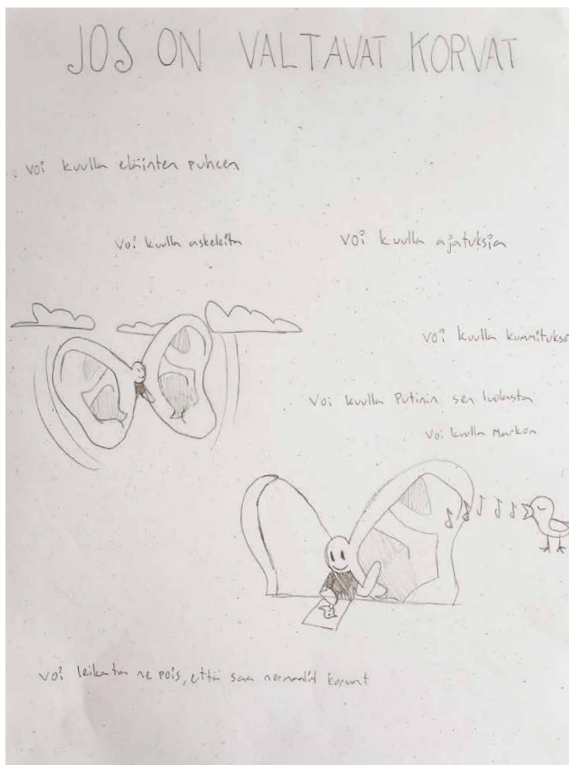 JOS ON VALTAVAT KORVAT
voi kuulla eläinten puheen
voi kuulla askeleita
voi kuulla ajatuksia
voi kuulla kummitukse
voi kuulla Putinin sen luolasta
voi kuulla Markon
voi leikata ne pois, että saa normaalit korvat